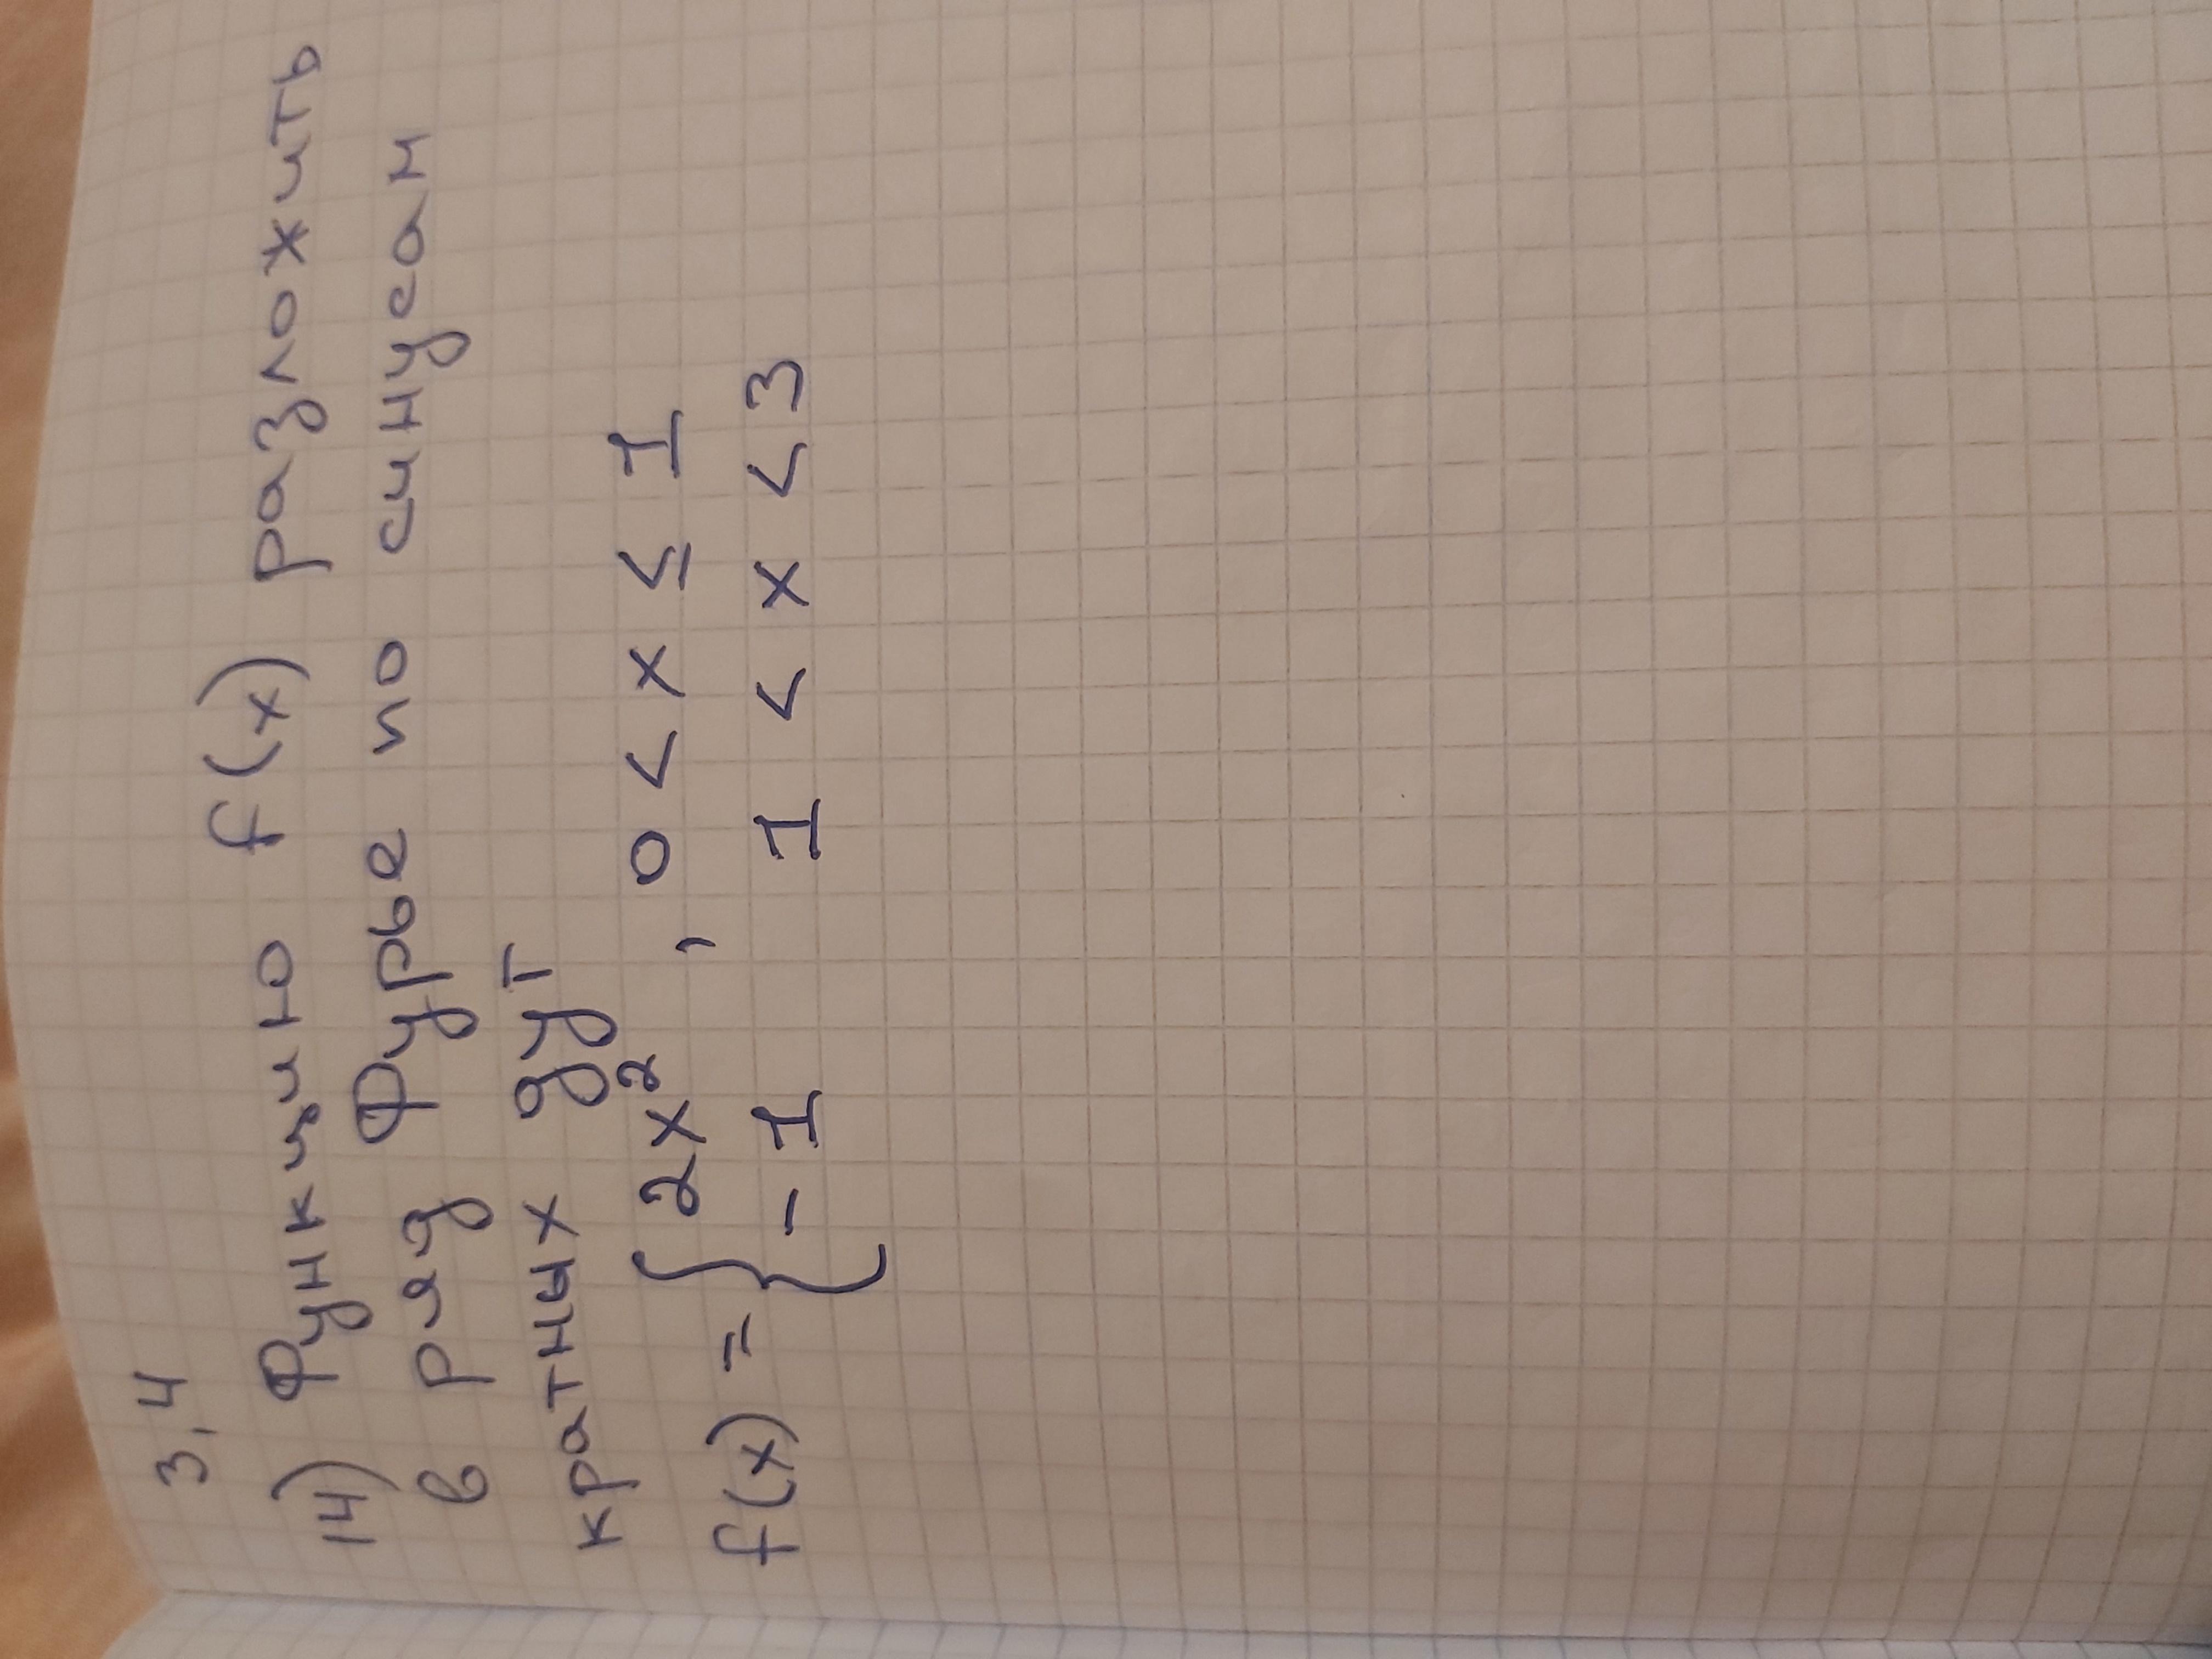 3,4
14) Функцию f(x) разложить
в ряд Фурье по синусам
кратных дуг
f(x) = { 2x², 0 < x ≤ 1
-1 1 < x < 3